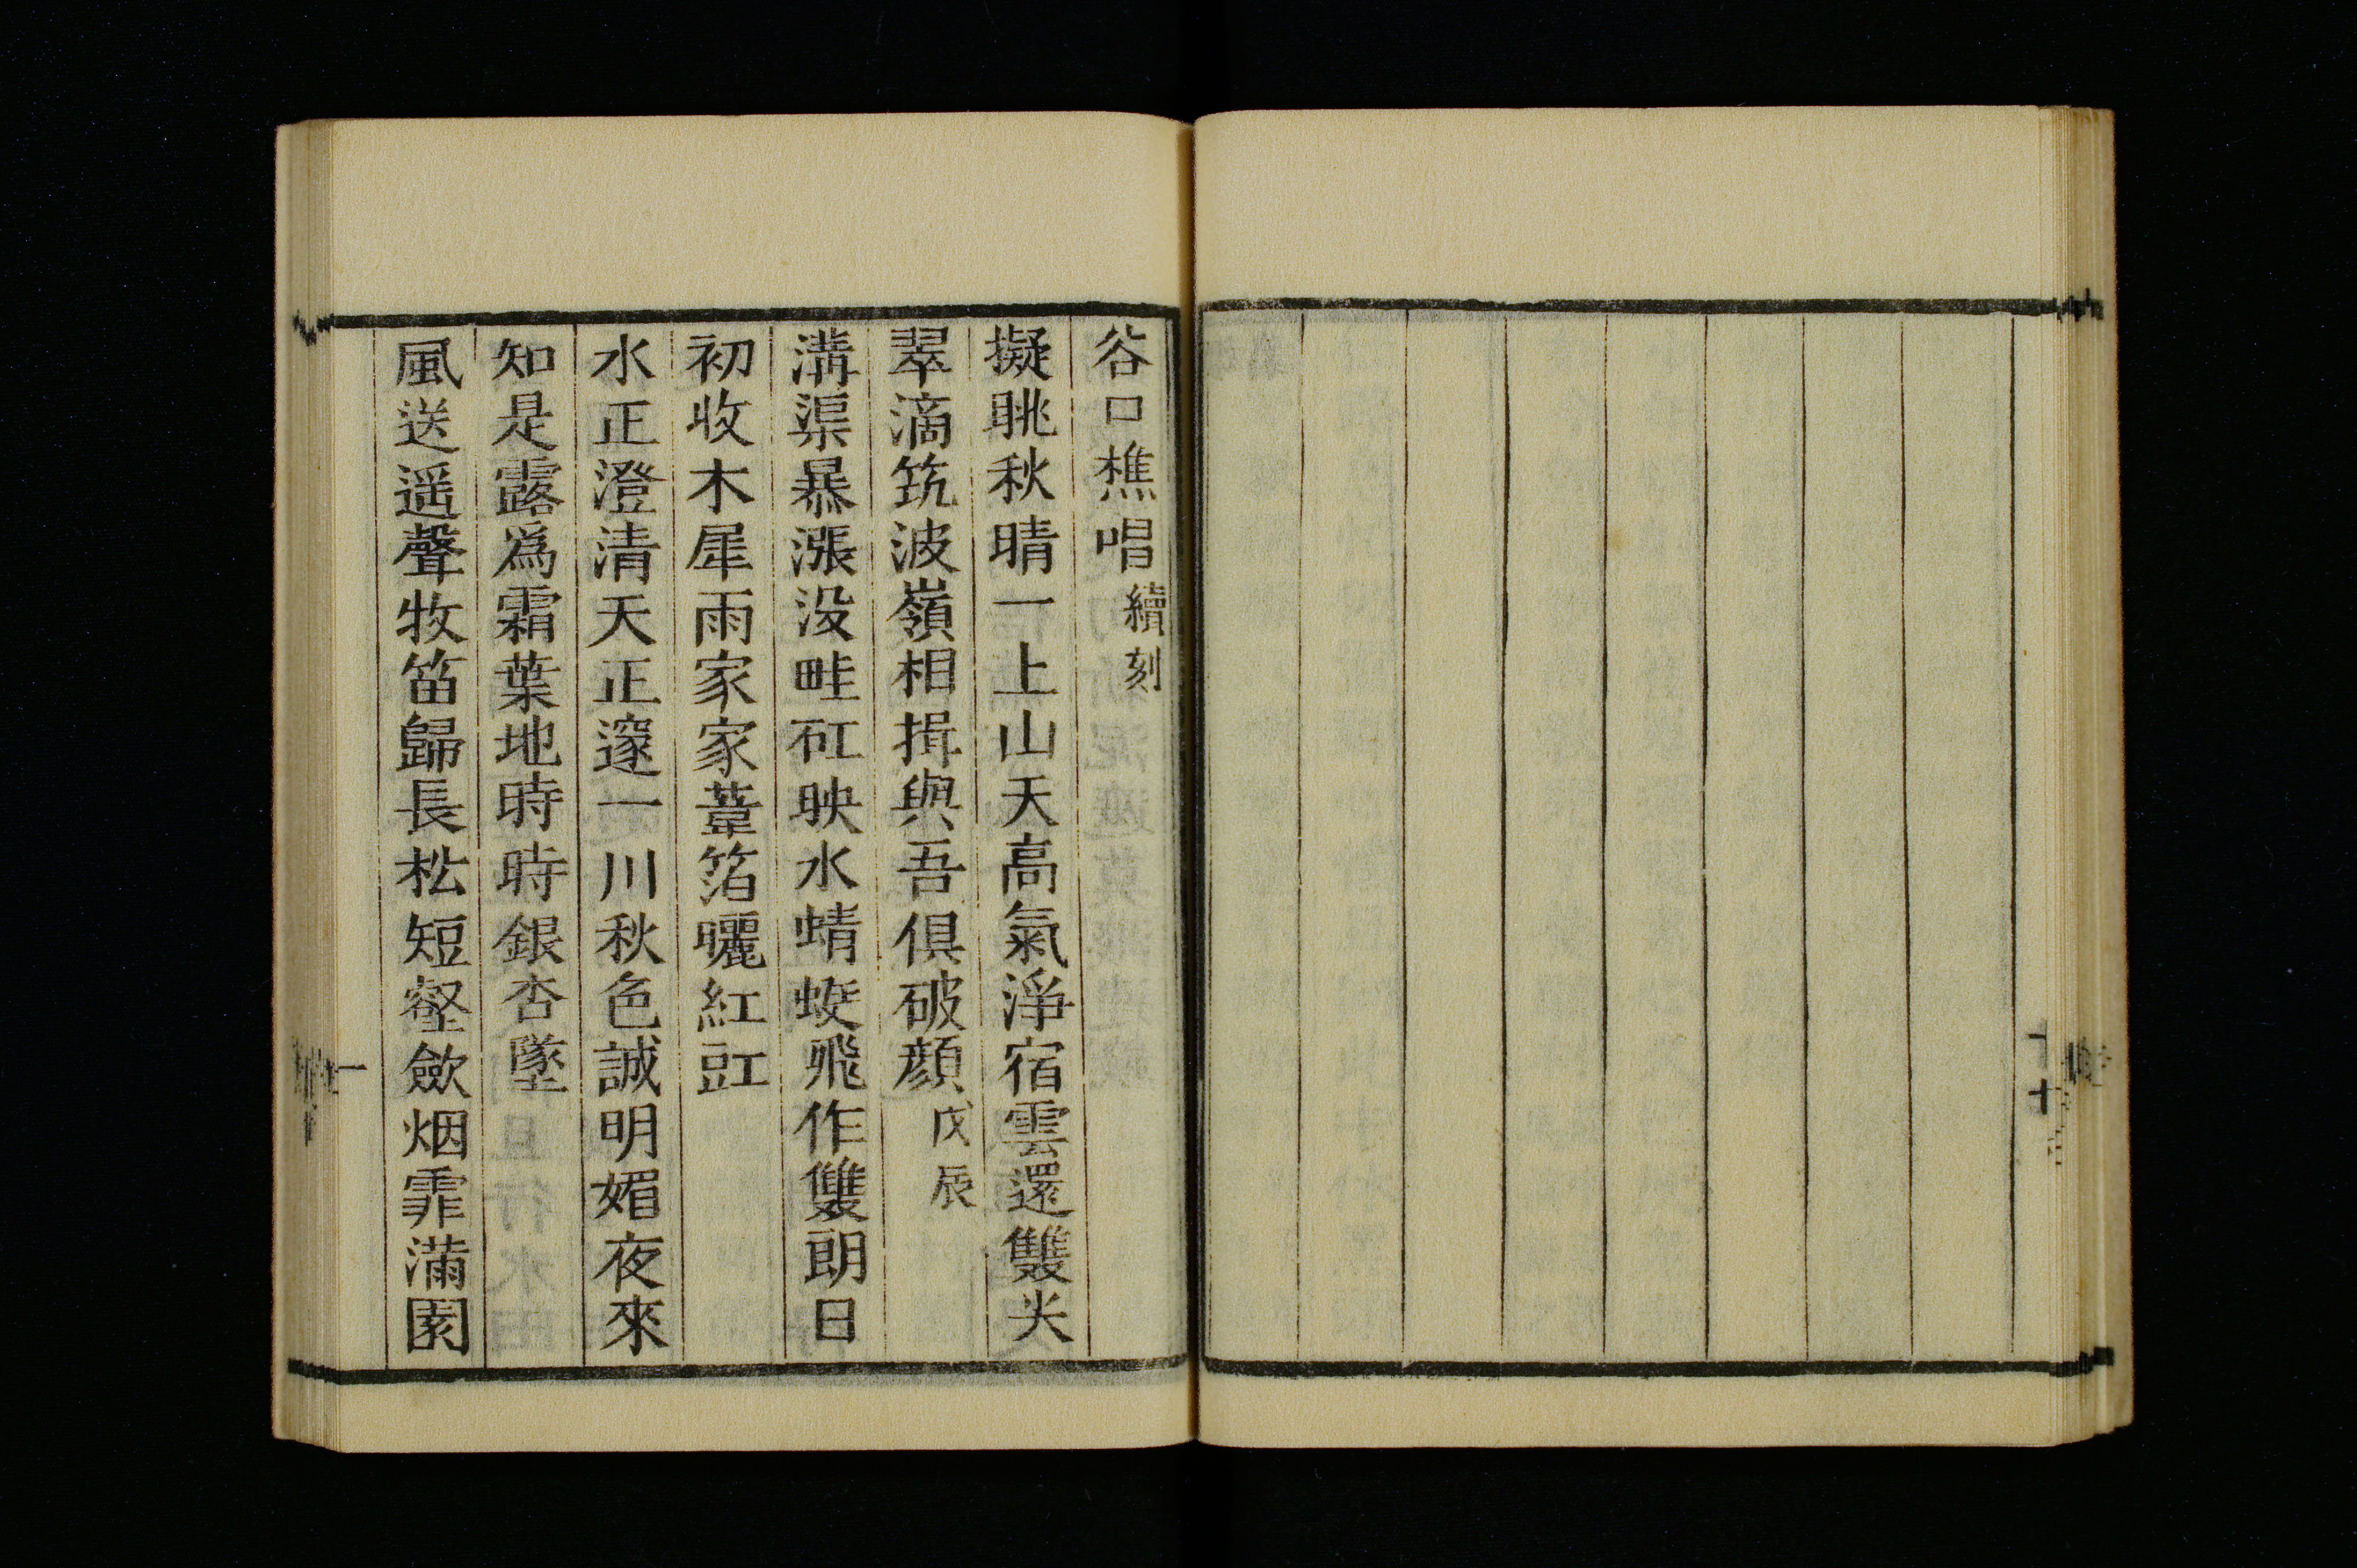 谷口樵唱 續刻
擬眺秋晴一上山天高氣淨宿雲還雙尖
翠滴筑波嶺相揖與吾俱破顔 戊辰
溝渠暴漲没畦矼映水蜻蜓飛作雙朗日
初收木犀雨家家葦箔曬紅豇
水正澄清天正邃一川秋色誠明媚夜來
知是露爲霜葉地時時銀杏墜
風送遥聲牧笛歸長松短壑歛烟霏滿園
一